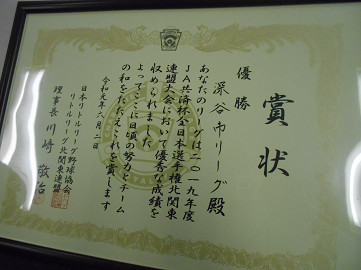 賞状
優勝
深谷市リーグ殿
あなたのリーグは二〇一九年度
JA共済杯全日本選手権北関東
連盟大会において優秀な成績を
収められました
よってここに日頃の努力とチーム
の和をたたえこれを賞します
令和元年六月二日
日本リトルリーグ野球協会
リトルリーグ北関東連盟
理事長 川崎 敬治